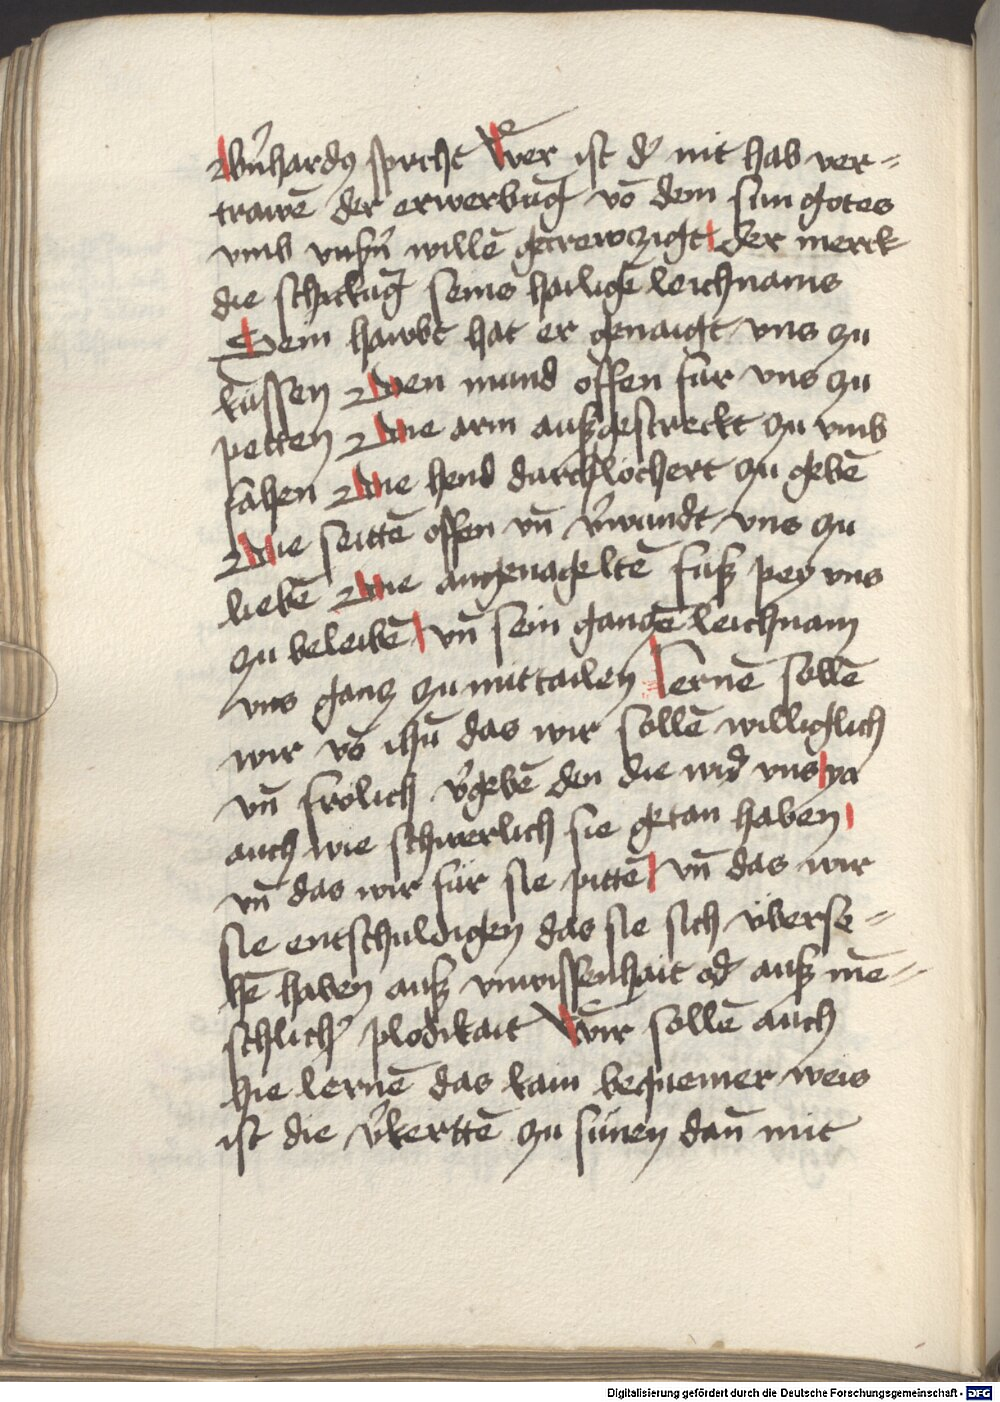 Bn̄hardꝰ spricht Wer ist d' nit hab ver=
trawē der erwerbūg vō dem sun gotes
vmb vnsn̄ willē gecrewczigt der merck
die schickūg seins hailigē leichnams
Sein hawbt hat er genaigt vns zu
küssen Den mund offen für vns zu
petten Die arm außgestreckt zu vmb
fahen Die hend durchlöchert zu gebē
Die seittē offen vn̄ v'wundt vns zu
liebē Die angenageltē füß pey vns
zu beleibē vn̄ sein ganczē leichnam
vns gancz zu mittailen Lernē sollē
wir vō ih̄u das wir sollē williglich
vn̄ frölich v'gebē den die wid' vns ya
auch wie schwerlich sie getan haben
vn̄ das wir für sie pittē vn̄ das wir
sie entschuldigen das sie sich überse=
hē haben auß vnwissenhait od' auß mē=
schlich' plodikait Wir sollē auch
hie lernē das kain bequemer weis
ist die v'kerttē zu sünen dan̄ mit
Digitalisierung gefördert durch die Deutsche Forschungsgemeinschaft - DFG